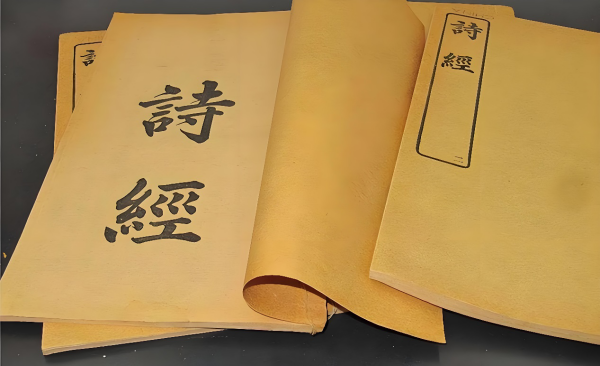 詩經
詩經 二